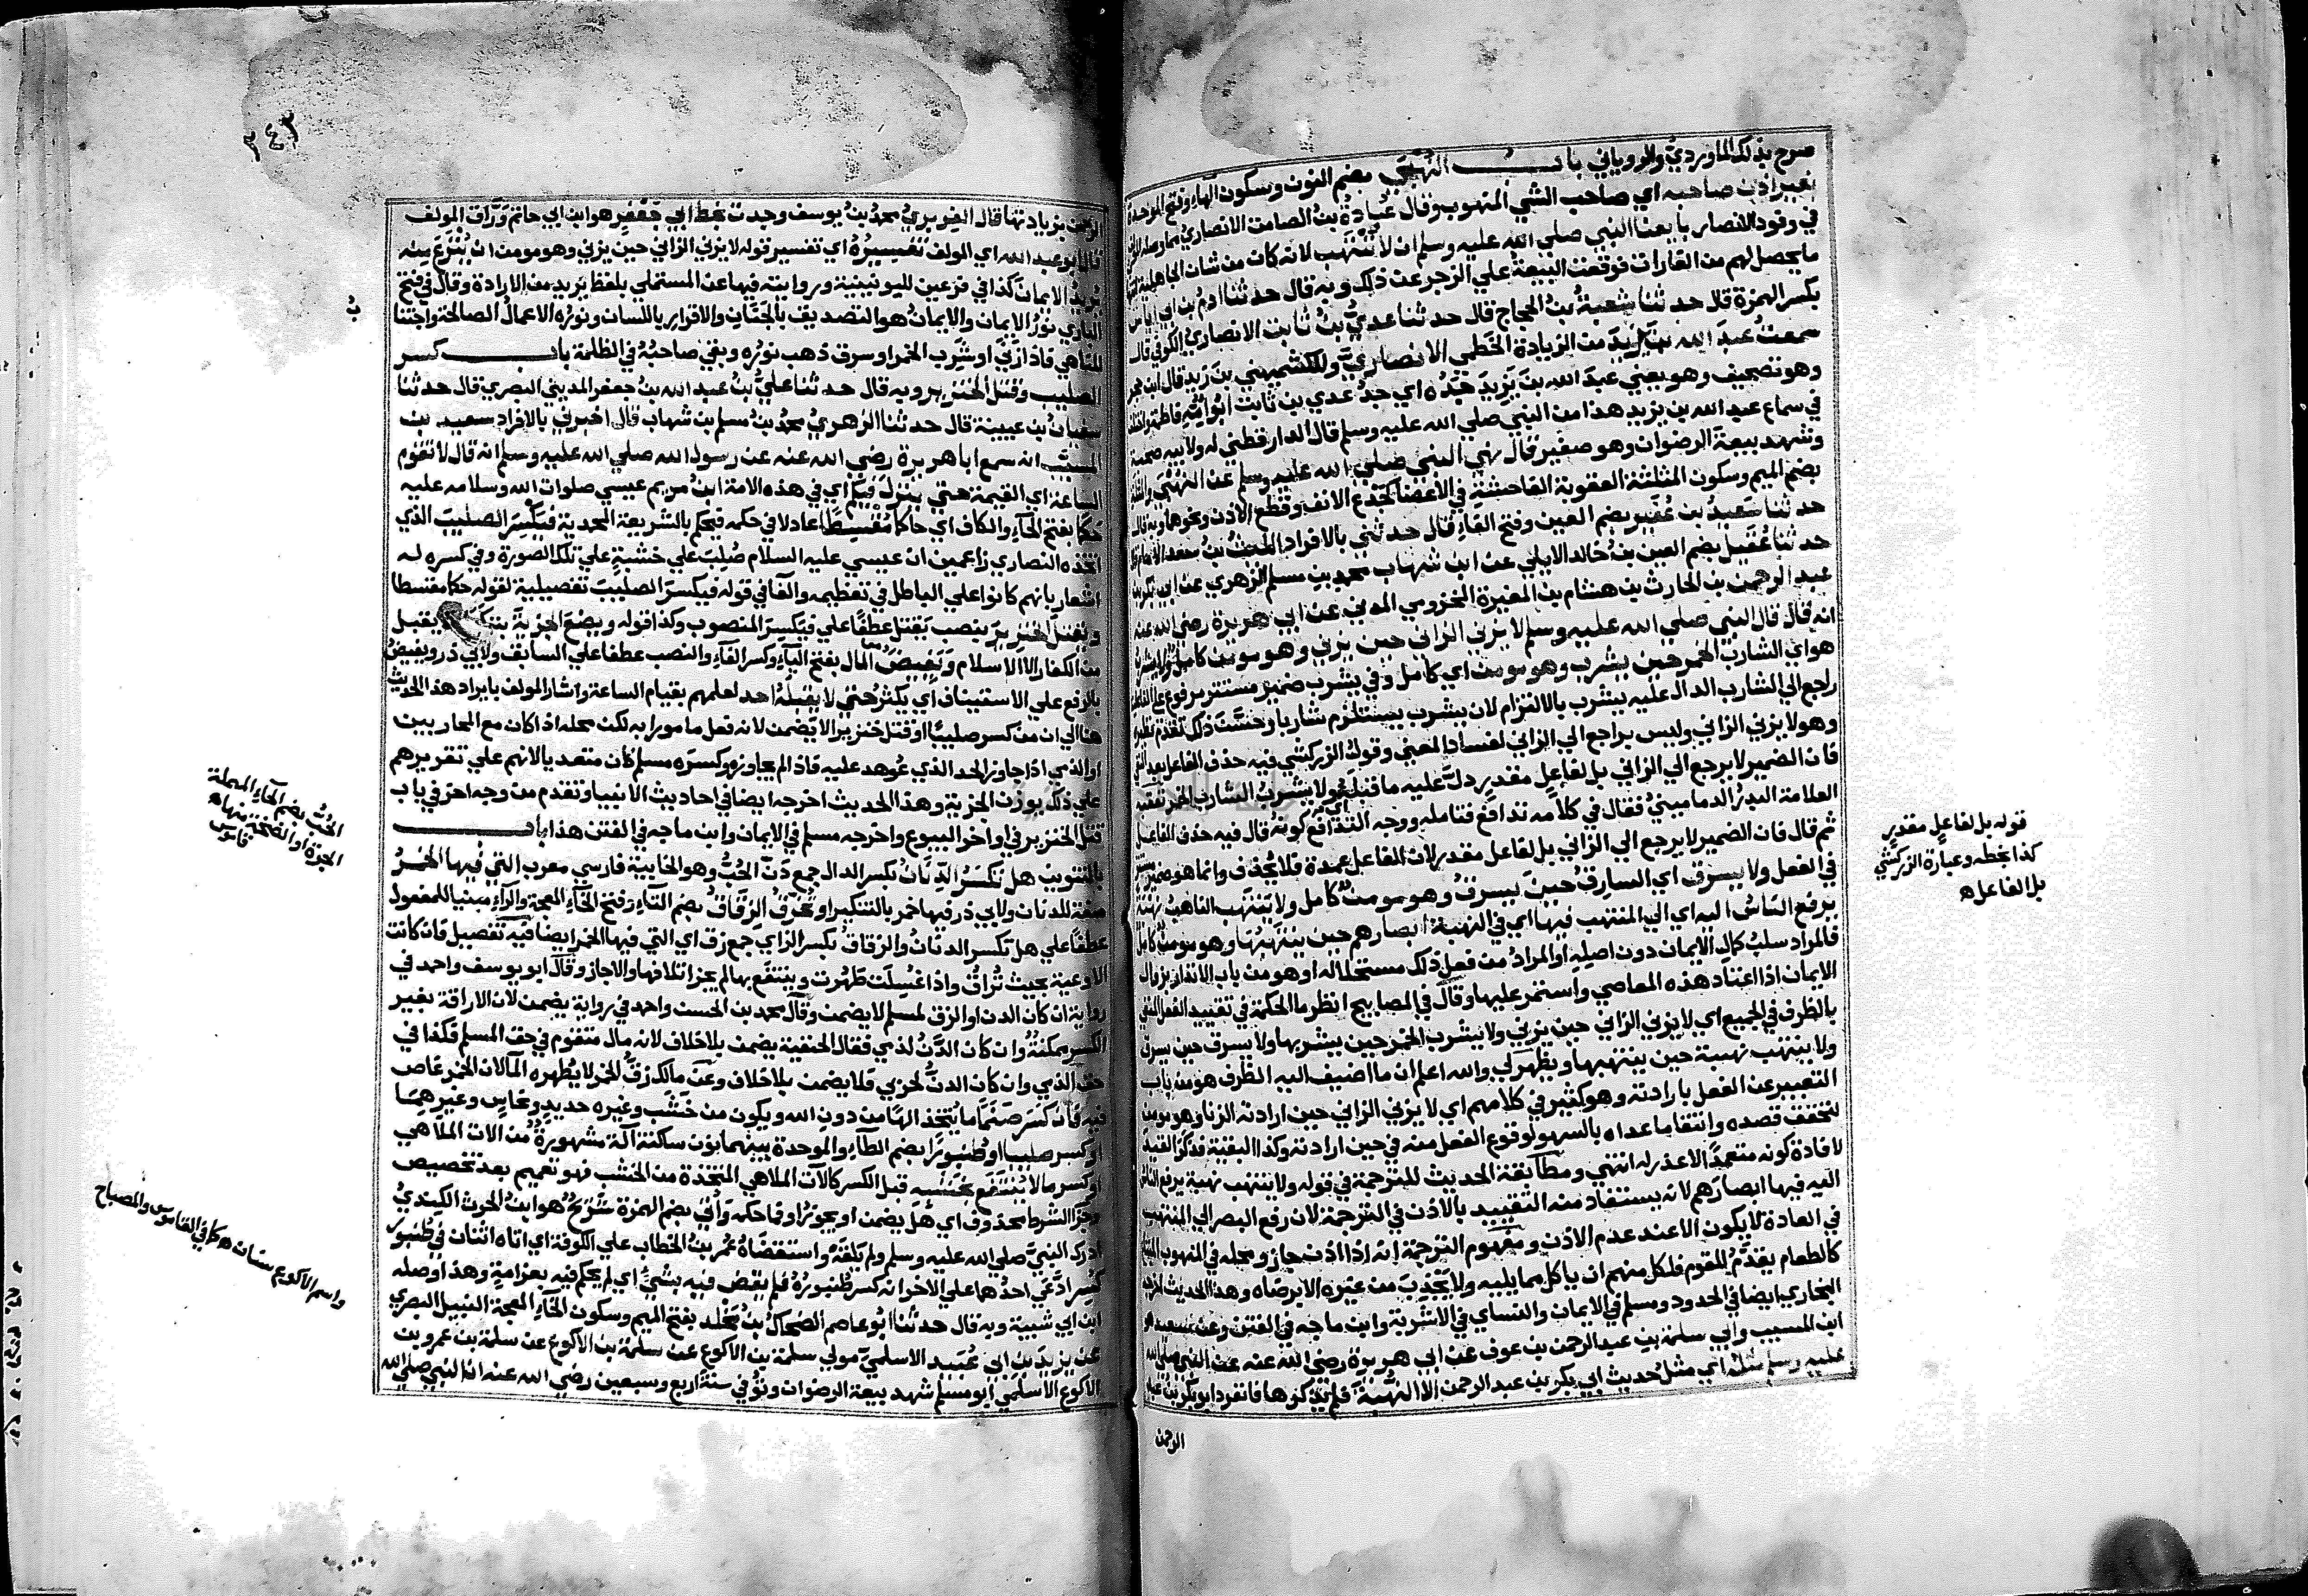 صرح بذلك الماوردي والروياني باب النهبى بضم النون وسكون الهاء وفتح الموحدة
بغير اذن صاحبه اي صاحب الشي المنهوب وقال عبادة بن الصامت الانصاري مما وصله المولف
في وفود الانصار بايعنا النبي صلي الله عليه وسلم ان لا ننتهب لانه كان من شان الجاهلية
ما يحصل لهم من الغارات فوقعت البيعة علي الزجر عن ذلك وبه قال حدثنا ادم بن ابي اياس
بكسر الهمزة قال حدثنا شعبة بن الحجاج قال حدثنا عدي بن ثابت الانصاري الكوفي قال
سمعت عبد الله بن يزيد من الزيادة الخطمي الانصاري وللكشميهني بن زيد قال ابن حجر
وهو تصحيف وهو يعني عبد الله بن يزيد جده اي جد عدي بن ثابت ابو امه فاطمة
في سماع عبد الله بن يزيد هذا من النبي صلي الله عليه وسلم قال الدارقطني له ولابيه صحبة
وشهد بيعة الرضوان وهو صغير قال نهي النبي صلي الله عليه وسلم عن النهبي والمثلة
بضم الميم وسكون المثلثة العقوبة الفاحشة في الاعضا كجدع الانف وقطع الاذن ونحوها وبه قال
حدثنا سعيد بن عفير بضم العين وفتح الفاء قال حدثني بالافراد الليث بن سعد الامام قال
حدثنا عقيل بضم العين بن خالد الايلي عن ابن شهاب محمد بن مسلم الزهري عن ابي بكر بن
عبد الرحمن بن الحارث بن هشام بن المغيرة المخزومي المدني عن ابي هريرة رضي الله عنه
انه قال قال النبي صلي الله عليه وسلم لا يزني الزاني حين يزني وهو مومن كامل ولا يشرب
هو اي الشارب الخمر حين يشرب وهو مومن اي كامل وفي يشرب ضمير مستتر مرفوع علي الفاعلية
راجع الي الشارب الدال عليه يشرب بالالتزام لان يشرب يستلزم شاربا وحسن ذلك تقدم نظيره
وهو لا يزني الزاني وليس براجع الي الزاني لفساد المعني وقول الزركشي فيه حذف الفاعل بعد النفي
فان الضمير لا يرجع الي الزاني بل لفاعل مقدر دل عليه ما قبله اي ولا يشرب الشارب الخمر تعقبه
العلامة البدر الدماميني فقال في كلامه تدافع فتامله ووجه التدافع كونه قال فيه حذف الفاعل
ثم قال فان الضمير لا يرجع الي الزاني بل لفاعل مقدر لان الفاعل عمدة فلا يحذف وانما هو ضمير مستتر
في الفعل ولا يسرق اي السارق حين يسرق وهو مومن كامل ولا ينتهب الناهب نهبة
يرفع الناس اليه اي الي المنتهب فيها اي في النهبة ابصارهم حين ينتهبها وهو مومن كامل
فالمراد سلب كمال الايمان دون اصله او المراد من فعل ذلك مستحلا له او هو من باب الانذار بزوال
الايمان اذا اعتاد هذه المعاصي واستمر عليها وقال في المصابيح انظر ما الحكمة في تقييد الفعل المنفي
بالظرف في الجميع اي لا يزني الزاني حين يزني ولا يشرب الخمر حين يشربها ولا يسرق حين يسرق
ولا ينتهب نهبة حين ينتهبها ويظهر لي والله اعلم ان ما اضيف اليه الظرف هو من باب
التعبير عن الفعل بارادته وهو كثير في كلامهم اي لا يزني الزاني حين ارادته الزنا وهو مومن
لتحقق قصده وانتفا ما عداه بالسهو لوقوع الفعل منه في حين ارادته وكذا البقية فذكر القيد
لافادة كونه متعمدا لا عذر له انتهي ومطابقة الحديث للترجمة في قوله ولا ينتهب نهبة يرفع الناس
اليه فيها ابصارهم لانه يستفاد منه التقييد بالاذن في الترجمة لان رفع البصر الي المنتهب
في العادة لا يكون الا عند عدم الاذن ومفهوم الترجمة انه اذا اذن جاز ومحله في المنهوب المشاع
كالطعام يقدم للقوم فلكل منهم ان ياكل مما يليه ولا يجذب من غيره الا برضاه وهذا الحديث اخرجه
البخاري ايضا في الحدود ومسلم في الايمان والنساي في الاشربة وابن ماجه في الفتن وعن سعيد هو
ابن المسيب وابي سلمة بن عبد الرحمن بن عوف عن ابي هريرة رضي الله عنه عن النبي صلي الله
عليه وسلم مثله اي مثل حديث ابي بكر بن عبد الرحمن الا النهبة فلم يذكرها فانفرد ابو بكر بن عبد
الرحمن
قوله بل لفاعل مقدر
كذا بخطه وعبارة الزركشي
بل الفاعل اه
٢٤٣
الرحمن بزيادتها قال الفربري محمد بن يوسف وجدت بخط ابي جعفر هو ابن ابي حاتم وراق المولف
قال ابو عبد الله اي المولف تفسيره اي تفسير قوله لا يزني الزاني حين يزني وهو مومن ان ينزع منه
يريد الايمان كذا في فرعين لليونينية وروايته فيها عن المستملي بلفظ يريد من الارادة وقال في فتح
الباري نور الايمان والايمان هو التصديق بالجنان والاقرار باللسان ونوره الاعمال الصالحة واجتناب
المناهي فاذا زني او شرب الخمر او سرق ذهب نوره وبقي صاحبه في الظلمة باب كسر
الصليب وقتل الخنزير وبه قال حدثنا علي بن عبد الله بن جعفر المديني البصري قال حدثنا
سفيان بن عيينة قال حدثنا الزهري محمد بن مسلم بن شهاب قال اخبرني بالافراد سعيد بن
المسيب انه سمع ابا هريرة رضي الله عنه عن رسول الله صلي الله عليه وسلم انه قال لا تقوم
الساعة اي القيمة حتي ينزل فيكم اي في هذه الامة ابن مريم عيسي صلوات الله وسلامه عليه
حكما بفتح الحاء والكاف اي حاكما مقسطا عادلا في حكمه فيحكم بالشريعة المحمدية فيكسر الصليب الذي
اتخذه النصاري زاعمين ان عيسي عليه السلام صلب علي خشبة علي تلك الصورة وفي كسره له
اشعار بانهم كانوا علي الباطل في تعظيمه والفا في قوله فيكسر الصليب تفصيلية لقوله حكما مقسطا
ويقتل الخنزير بنصب يقتل عطفا علي فيكسر المنصوب وكذا قوله ويضع الجزية يقبل
من الكفار الا الاسلام ويفيض المال بفتح الياء وكسر الفاء والنصب عطفا علي السابق ولابي ذر ويفيض
بالرفع علي الاستيناف اي يكثر حتي لا يقبله احد لعلمهم بقيام الساعة واشار المولف بايراد هذا الحديث
هنا الي ان من كسر صليبا او قتل خنزيرا لا يضمن لانه فعل مامورا به لكن محله اذا كان مع المحاربين
او الذمي اذا جاوز الحد الذي عوهد عليه فاذا لم يجاوزه وكسره مسلم كان متعديا لانهم علي تقريرهم
علي ذلك يودون الجزية وهذا الحديث اخرجه ايضا في احاديث الانبيا وتقدم من وجه اخر في باب
قتل الخنزير في اواخر البيوع واخرجه مسلم في الايمان وابن ماجه في الفتن هذا باب
بالتنوين هل تكسر الدنان بكسر الدال جمع دن الحب وهو الخابية فارسي معرب التي فيها الخمر
صفة للدنان ولابي ذر فيها خمر بالتنكير او تخرق الزقاق بضم التاء وفتح الخاء المعجمة والراء مبنيا للمفعول
عطفا علي هل تكسر الدنان والزقاق بكسر الزاي جمع زق اي التي فيها الخمر ايضا فيه تفصيل فان كانت
الاوعية بحيث تراق واذا غسلت طهرت وينتفع بها لم يجز اتلافها والا جاز وقال ابو يوسف واحمد في
رواية ان كان الدن او الزق لمسلم لا يضمن وقال محمد بن الحسن واحمد في رواية يضمن لان الاراقة بغير
الكسر ممكنة وان كان الدن لذمي فقال الحنفية يضمن بلا خلاف لانه مال متقوم في حق المسلم فكذا في
حق الذمي وان كان الدن لحربي فلا يضمن بلا خلاف وعن مالك زق الخمر لا يطهره الما لان الخمر غاص
فيه فان كسر صنما ما يتخذ الها من دون الله ويكون من خشب وغيره حديد ونحاس وغيرهما
او كسر صليبا او طنبورا بضم الطاء والموحدة بينهما نون ساكنة آلة مشهورة من الات الملاهي
او كسر ما لا ينتفع بخشبه قبل الكسر كآلات الملاهي المتخذة من الخشب فهو تعميم بعد تخصيص
وجزا الشرط محذوف اي هل يضمن او يجوز او فما حكمه واتي بضم الهمزة شريح هو ابن الحرث الكندي
ادرك النبي صلي الله عليه وسلم ولم يلقه واستقضاه عمر بن الخطاب علي الكوفة اي اتاه اثنان في طنبور
كسر ادعي احدهما علي الاخر انه كسر طنبوره فلم يقض فيه بشي اي لم يحكم فيه بغرامة وهذا وصله
ابن ابي شيبة وبه قال حدثنا ابو عاصم الضحاك بن مخلد بفتح الميم وسكون الخاء المعجمة النبيل البصري
عن يزيد بن ابي عبيد الاسلمي مولي سلمة بن الاكوع عن سلمة بن الاكوع عن سلمة بن عمرو بن
الاكوع الاسلمي ابو مسلم شهد بيعة الرضوان وتوفي سنة اربع وسبعين رضي الله عنه ان النبي صلي الله
الحب بضم الحاء المهملة
الجرة او الضخمة منها اه
قاموس
واسم الاكوع سنان اه كما في القاموس والمصباح